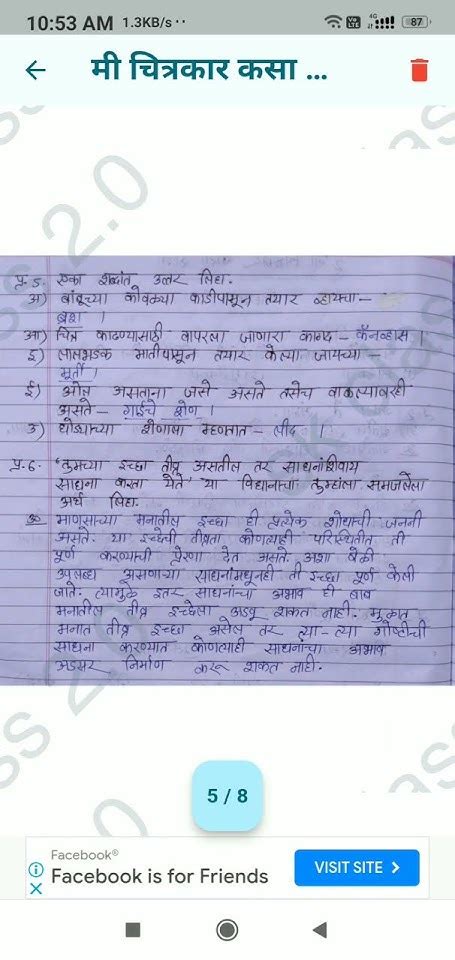 10:53 AM 1.3KB/s ··
4G
VO LTE
87
मी चित्रकार कसा ...
ss 2.0
प्र. 5. एका शब्दांत उत्तर लिहा.
अ) बांबूच्या कोवळ्या काडीपासून तयार व्हायचा –
ब्रश ।
आ) चित्र काढण्यासाठी वापरला जाणारा कागद – कॅनव्हास ।
इ) लालभडक मातीपासून तयार केल्या जायच्या –
मूर्ती ।
ई) ओले असताना जसे असते तसेच वाळल्यावरही
असते – गाईचे शेण ।
उ) घोड्याच्या शेणाला म्हणतात – लीद
प्र. 6. 'तुमच्या इच्छा तीव्र असतील तर साधनांशिवाय
साधना करता येते' या विधानाचा तुम्हांला समजलेला
अर्थ लिहा.
माणसाच्या मनातील इच्छा ही प्रत्येक शोधाची जननी
असते. या इच्छेची तीव्रता कोणत्याही परिस्थितीत ती
पूर्ण करण्याची प्रेरणा देत असते. अशा वेळी
उपलब्ध असणाऱ्या साधनांमधूनही ती इच्छा पूर्ण केली
जाते. त्यामुळे इतर साधनांचा अभाव ही बाब
मनातील तीव्र इच्छेला अडवू शकत नाही. मुळात
मनात तीव्र इच्छा असेल तर त्या-त्या गोष्टीची
साधना करण्यात कोणत्याही साधनांचा अभाव
अडसर निर्माण करू शकत नाही.
5 / 8
Facebook®
Facebook is for Friends
VISIT SITE